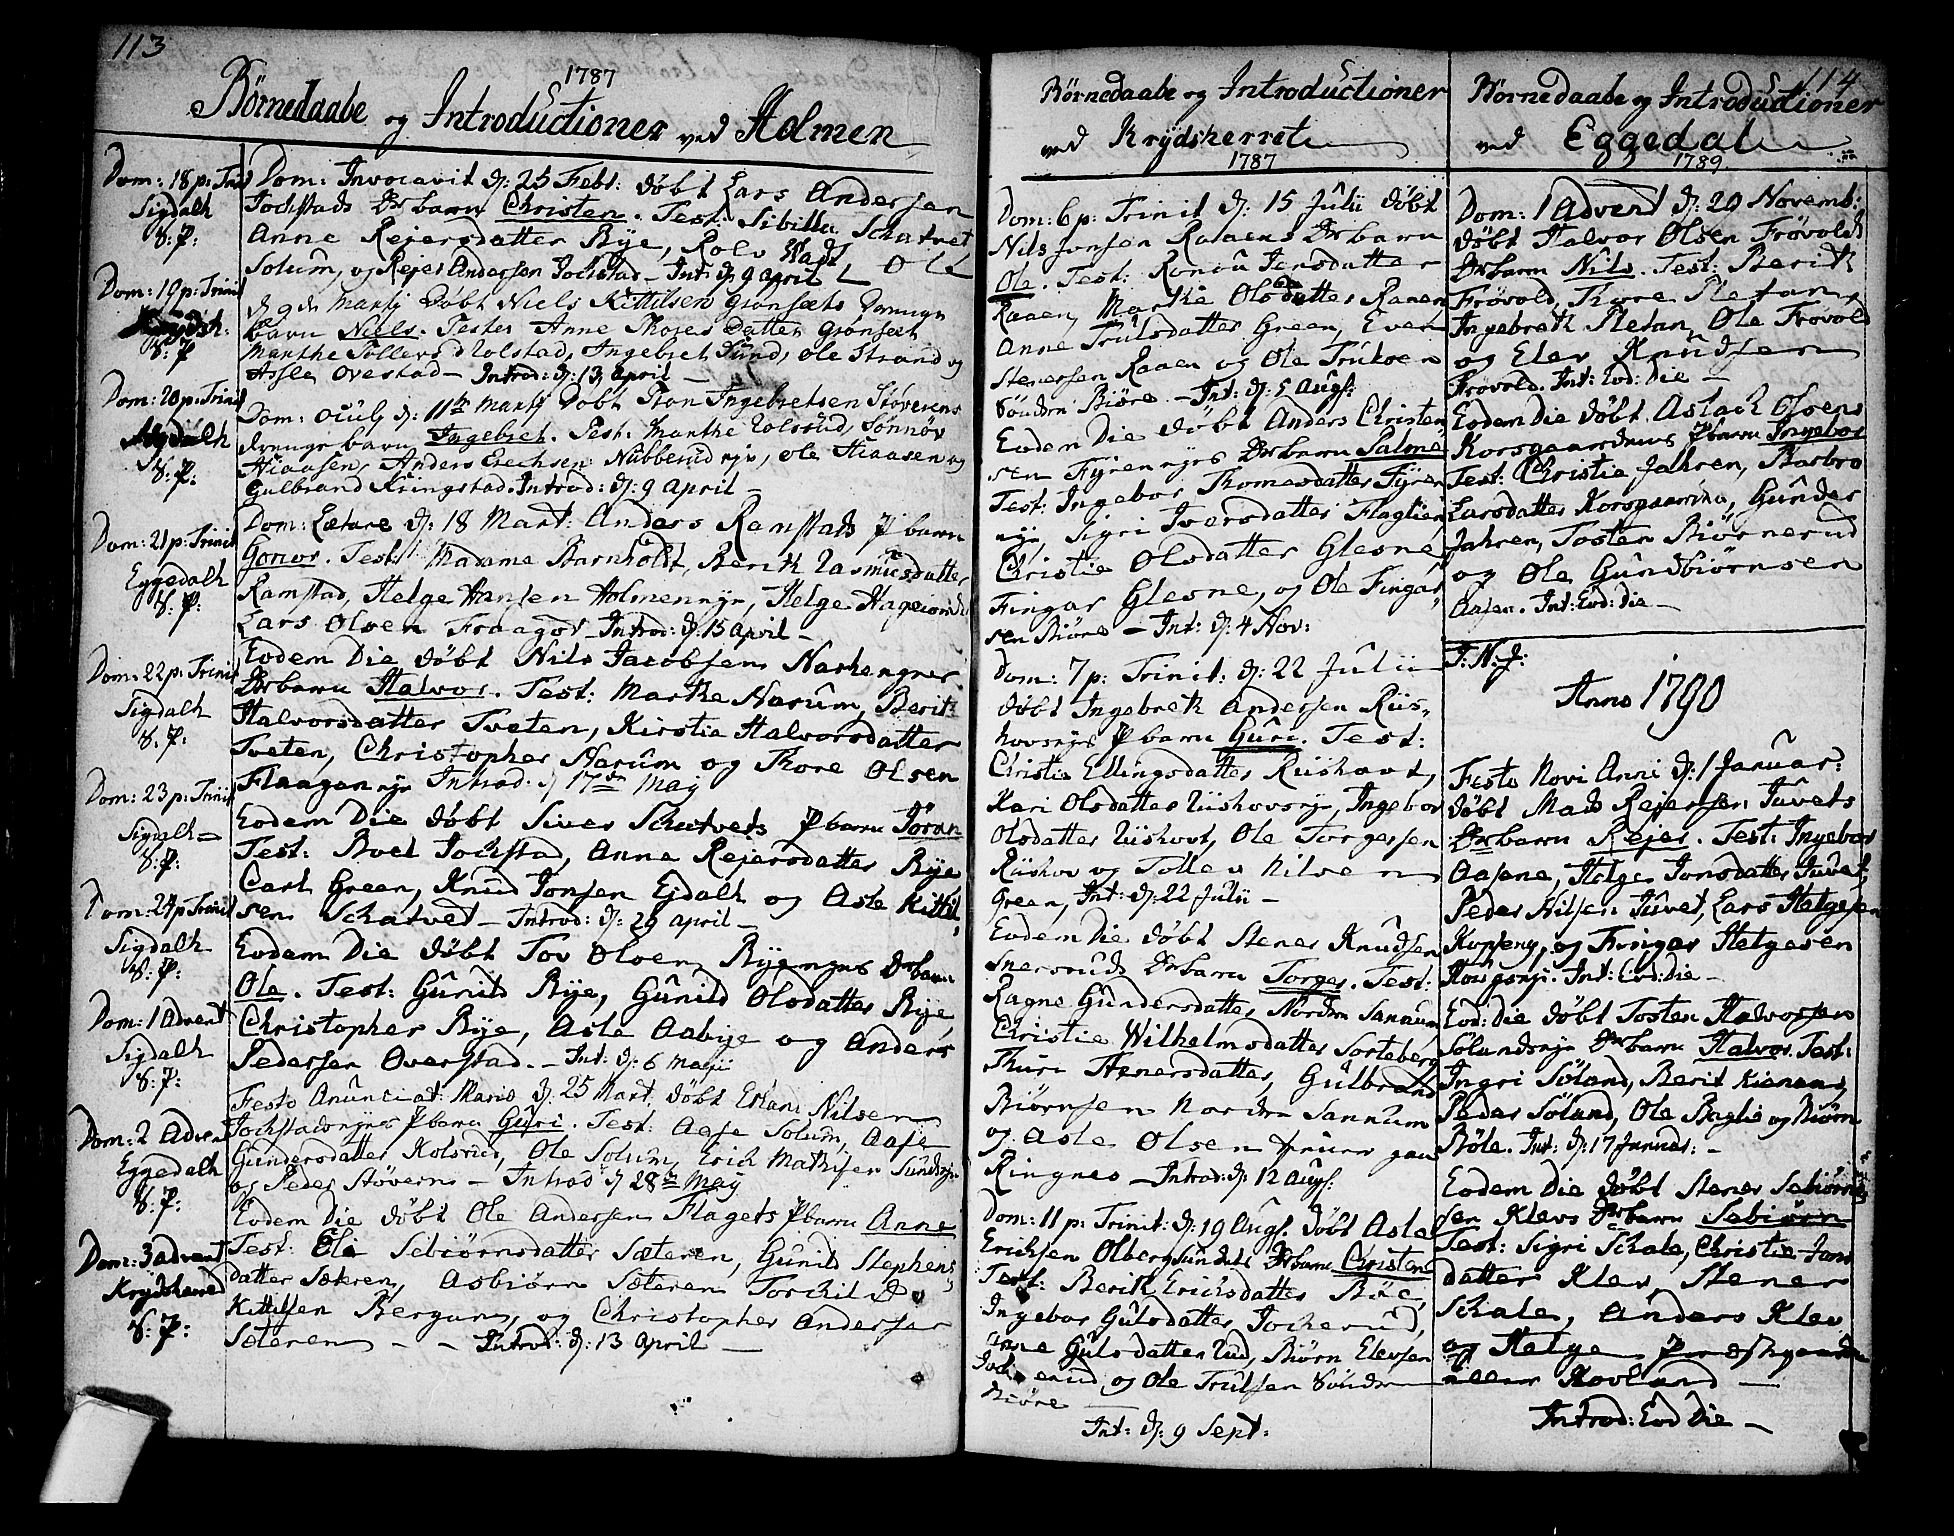 113
1787
Börnedaabe og Introductioner ved Holmen
Dom: 18 p: Trinit
Sigdalh
S: P:
Dom: 19 p: Trinit
Krydsh:
S: P
Dom: 20 p: Trinit
Sigdalh
S: P:
Dom: 21 p: Trinit
Eggedalh
S: P:
Dom: 22 p: Trinit
Sigdalh
S: P:
Dom: 23 p: Trinit
Sigdalh
S: P:
Dom: 24 p Trinit
Sigdalh
S: P:
Dom: 1 Advent
Sigdalh
S: P:
Dom: 2 Advent
Eggedalh
S: P:
Dom: 3 advent
Krydsherred
S: P:
Dom: Invocavit d: 25 Febr: döbt Lars Andersen
Jochstads barn Christen. Test: Sibilla Schatvet
Anne Rejersdatter Bye, Rolv
Solum, og Rejer Andersen Jochstad – Int: d: 9 april
Martij Döbt Niels Kittilsens Grönsets
barn Niels. Testes Anne Thores datter Grönset
Marthe Tollersd Rolstad, Ingebret Lund, Ole Strand og
Asle Ovestad – Introd: d: 13 april –
Dom: Oculi d: 11te Martij Döbt Ingebretsen Stöverens
barn Ingebret. Test: Marthe Kolsrud, Sönnöv
Hiaasen, Anders Erichsen Nubberud, Ole Hiaasen og
Gulbrand Kringstad. Introd: d: 9 April –
Dom: Lætare d: 18 Mart: Anders Ramstads barn
Gonor. Test: Madame Barnholdt, Berit Rasmusdatter
Ramstad, Helge Hansen Holmennye, Helge
Lars Olsen Fraagot – Introd: d: 15 april –
Eodem Die döbt Nils Jacobsen
barn Halvor. Test: Marthe Narum, Berit
Halvorsdatter Tveten, Kirstie Halvorsdatter
Tveten, Christopher Narum og Thore Olsen
Flaagan Introd: d 17de May
Eodem Die döbt Siver Schatvets barn Jöran
Test: Boel Jochstad, Anne Rejersdatter Bye
Carl Green, Knud Jonsen Ejdalh og Asle Kittil
sen Schatvet – Introd: d: 29 april –
Eodem Die döbt Tov Olsen barn
Ole. Test: Gunild Bye, Gunild Olsdatter Bye,
Christopher Bye, Asle Aabye og Anders
Pedersen Overstad. – Int: d: 6 Maji
Festo Anunciat: Mariæ d: 25 Mart, döbt Erland Nilsen
barn Guri. Test: Aase Solum, Aase
Gundersdatter Kolsrud, Ole Solum, Erich Mathisen
og Peder Stöveren – Introd d 28de May
Eodem Die döbt Ole Andersen Flagets barn Anne
Test: Eli Sebiörnsdatter Sæteren, Gunild Stephens
datter Sæteren, Asbiörn Sæteren Torchild
Kittilsen Bergan, og Christopher Andersen
Sæteren – – Introd: d: 13 April –
Börnedaabe og Introductioner
ved Krydsherret
1787
Dom: 6 p: Trinit d: 15 Julii döbt
Nils Jonsen Raaens barn
Ole. Test: Ronau Jensdatter
Raaen, Marthe Olsdatter Raaen
Anne Trulsdatter Green, Even
Stenersen Raaen og Ole Trulsen
Söndre Biöre – Int: d: 5 Augs:
Eodem Die döbt Anders Christen
sen barn Salme
Test: Ingebor Thomesdatter Fyren
Sigri Iversdatter
Christie Olsdatter Glesne,
Fingar Glesne, og Ole Fingar
sen Biöre – Int: d: 4 Nov:
Dom: 7 p: Trinit: d: 22 Julii
döbt Ingebreth Andersen Riis-
hovs barn Guri. Test:
Christie Ellingsdatter Riishovt,
Kari Olsdatter Riishovs, Ingebor
Olsdatter Riishovt, Ole Torgersen
Riishov og Tollev Nilsen
Green, Int: d: 22 Julii –
Eodem Die döbt Stener Knudsen
Snersruds barn Torger. Test:
Ragne Gundersdatter, Nordre Sanaum
Christie Wilhelmsdatter Sorteberg
Thuri Henersdatter, Gulbrand
Biörnsen Nordre Sannum
og Asle Olsen
Ringnes – Introd: d: 12 Augs:
Dom: 11 p: Trinit: d: 19 Augs: döbt Asle
Erichsen Olberg barn Christen
Test: Berit Erichsdatter Böe,
Ingebor Gulsdatter Jocherud,
Anne Gulsdatter Rud, Biörn Elevsen
Jocherud og Ole Trulsen Söndre
Biöre
Int: d: 9 Sept:
114
Börnedaabe og Introductioner
ved Eggedal
1789
Dom: 1 Advent d: 29 Novemb:
döbt Halvor Olsen Frövolds
barn Nils. Test: Berith
Frövold, Thore Pletan,
Ingebreth Pletan, Ole Frövold
og Elev Knudsen
Frövold. Int: Eod: Die –
Eodem Die döbt Aslach Olsens
Korsgaardens barn Ingebor
Test: Christie Jahren, Barbro
Larsdatter Korsgaarden, Gunder
Jahren, Tosten Biörnerud
og Ole Gundbiörnsen
Aasen. Int: Eod: Die –
I: N: J:
Anno 1790
Festo Novi Anni d: 1 Januar:
döbt Mads Rejersen Juvets
barn Rejer. Test: Ingebor
Aasene, Helge Jonsdatter Juvet,
Peder Nilsen Juvet, Lars Helgesen
Kopseng, og Fingar Helgesen
Int: Eod: Die –
Eod: Die döbt Tosten Halvorsen
barn Halvor. Test:
Ingri Söland, Berit
Peder Söland, Ole Baglie og Biörn
Böle. Int: d: 17 Januar: –
Eodem Die döbt Stener Sebiörn
sen Klevs barn Sebiörn
Test: Sigri Schale, Christie Jons
datter Klev, Stener
Schale, Anders Klev
og Helge Præstegaarden
eller Hovland –
Introd: Eod Die –